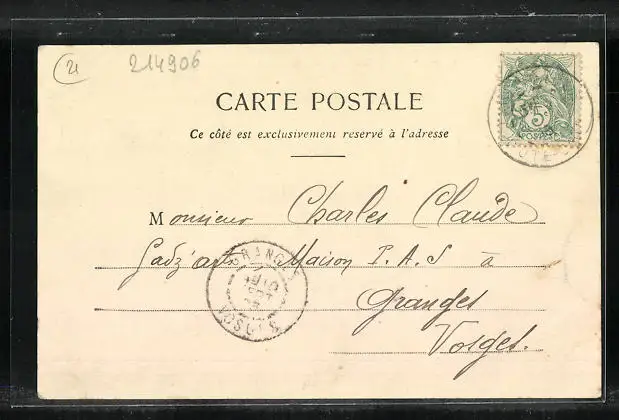 21 214906
CARTE POSTALE
Ce côté est exclusivement reservé à l'adresse
5
POSTES
Monsieur Charles Claude
Gadz'arts Maison P.A.S à
Granges
Vosges.
GRANGES
VOSGES